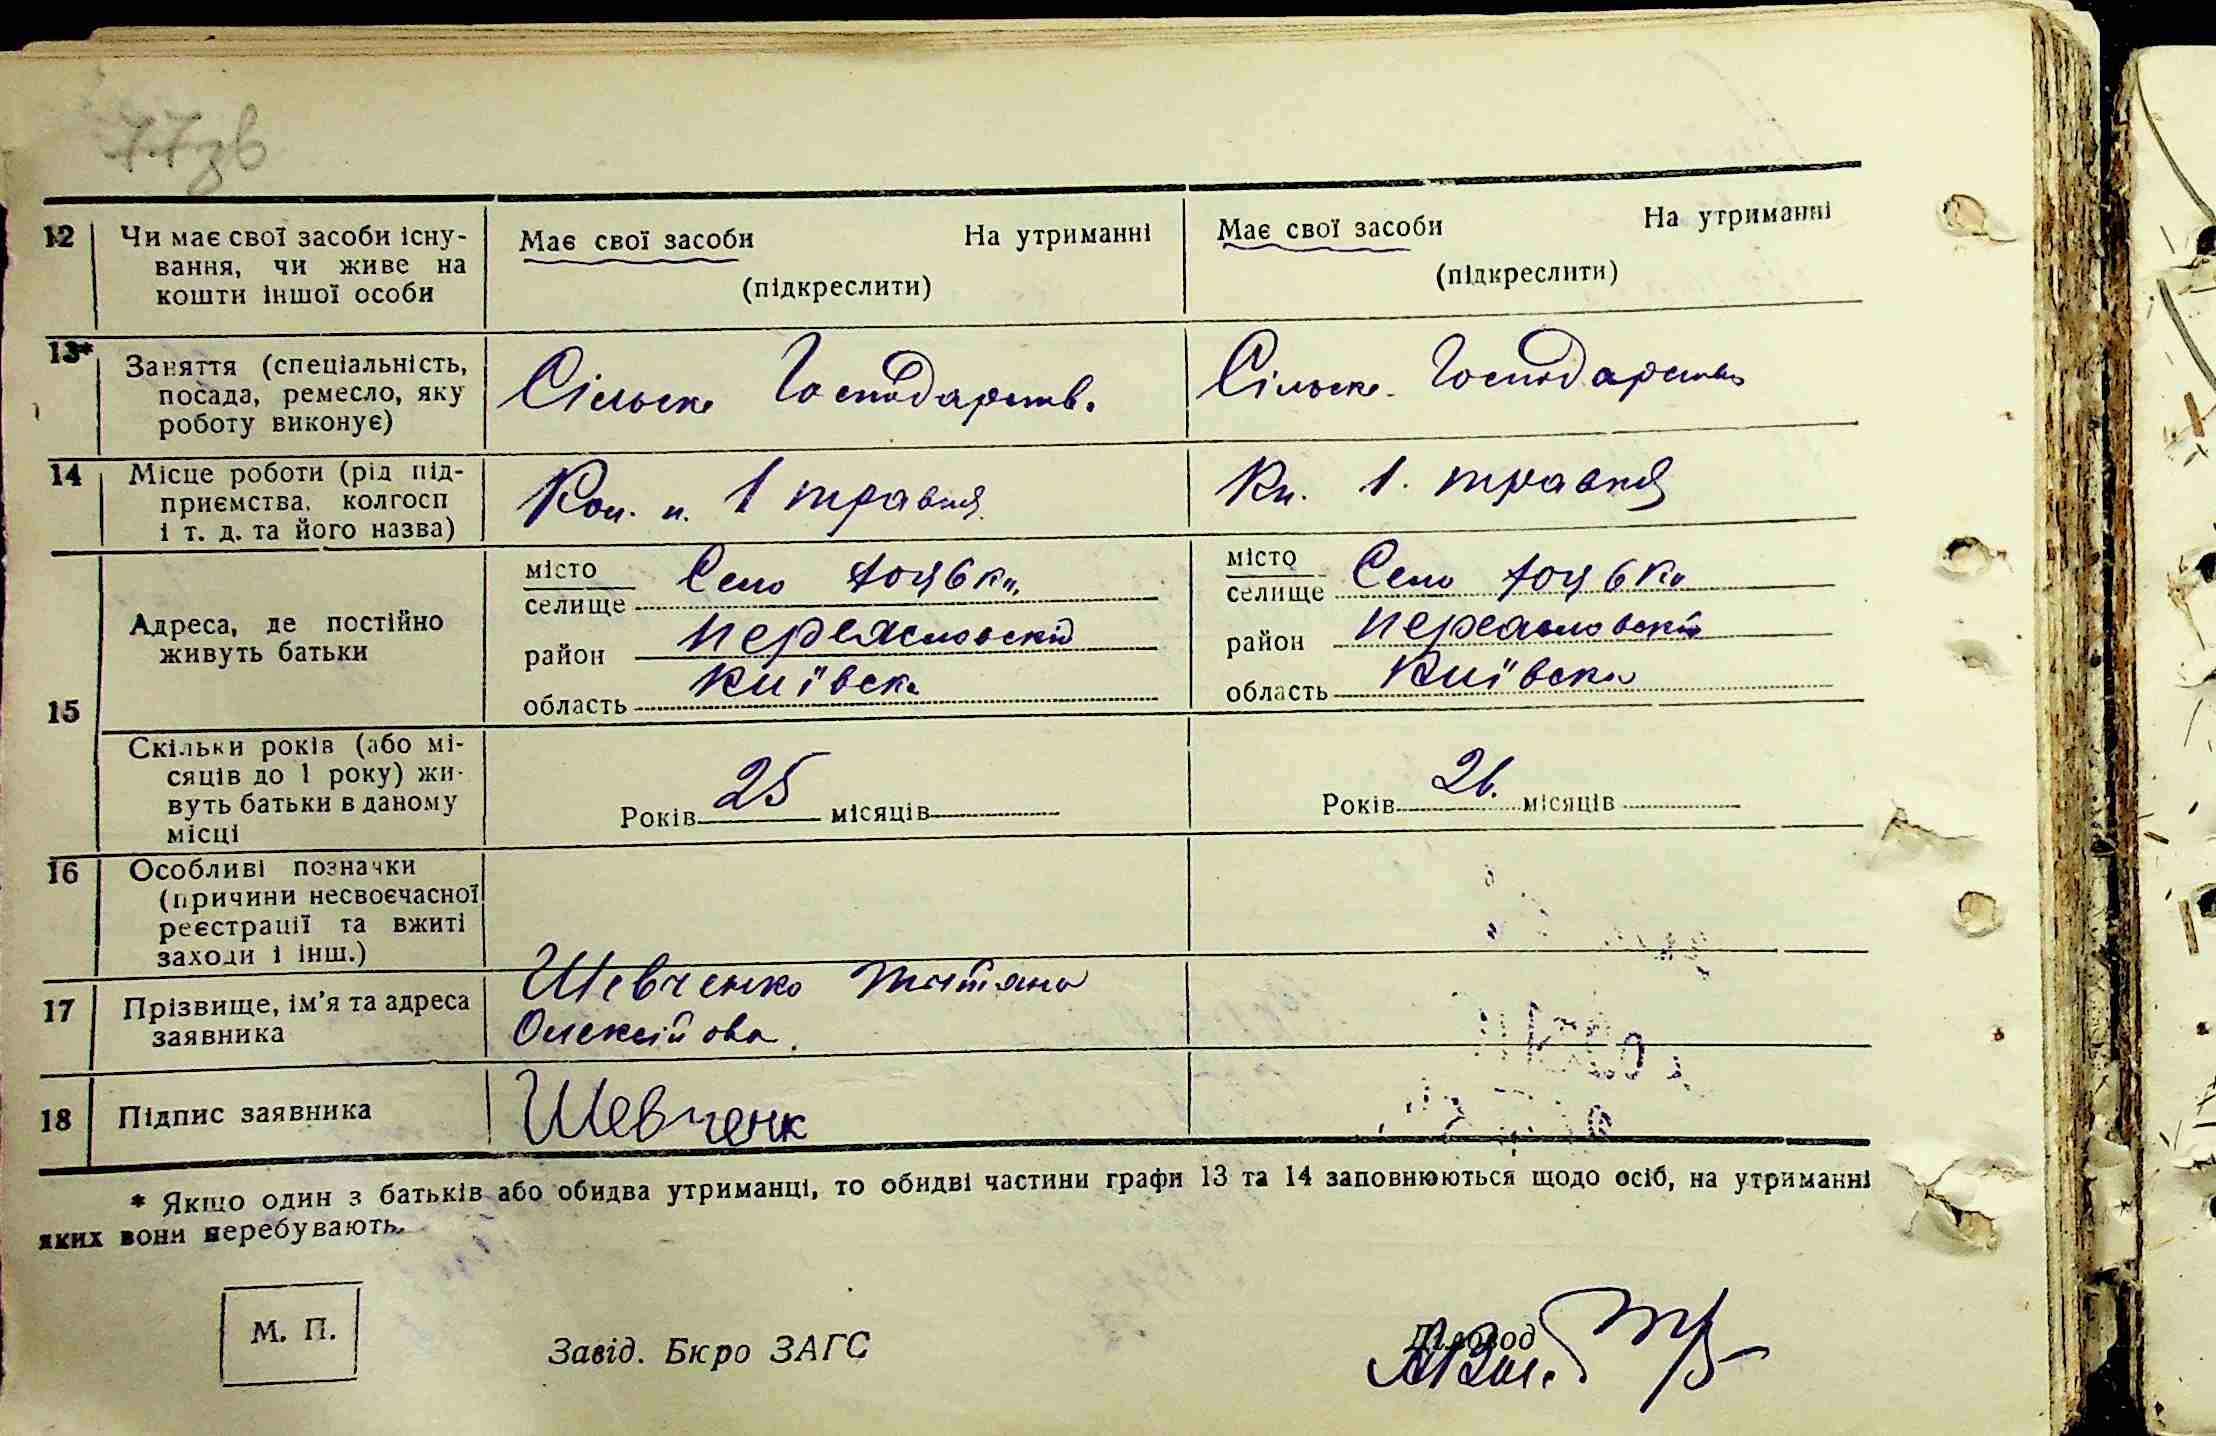 77зв
12 Чи має свої засоби існу-
вання, чи живе на
кошти іншої особи
Має свої засоби На утриманні
(підкреслити)
Має свої засоби На утриманні
(підкреслити)
13* Заняття (спеціальність,
посада, ремесло, яку
роботу виконує)
Сільське Господарств.
Сільске. Господарство
14 Місце роботи (рід під-
приємства, колгосп
і т. д. та його назва)
1 травня
1. травня
15 Адреса, де постійно
живуть батьки
місто
селище Село
район Переясловский
область Київска
місто
селище Село
район Переасловский
область Київска
Скільки років (або мі-
сяців до 1 року) жи-
вуть батьки в даному
місці
Років 25 місяців
Років 26. місяців
16 Особливі позначки
(причини несвоєчасної
реєстрації та вжиті
заходи і інш.)
17 Прізвище, ім'я та адреса
заявника
Шевченко Татьяна
Олексійова
18 Підпис заявника
Шевченк
* Якщо один з батьків або обидва утриманці, то обидві частини графи 13 та 14 заповнюються щодо осіб, на утриманні
яких вони перебувають.
М. П.
Завід. Бюро ЗАГС
Діловод